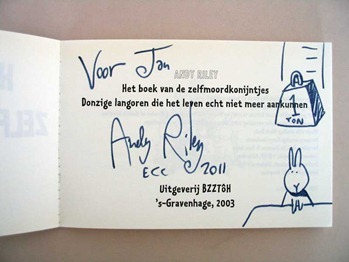 Voor Jan
ANDY RILEY
Het boek van de zelfmoordkonijntjes
Donzige langoren die het leven echt niet meer aankunnen
A
1
TON
Andy Riley
ECC 2011
Uitgeverij BZZTôH
's-Gravenhage, 2003